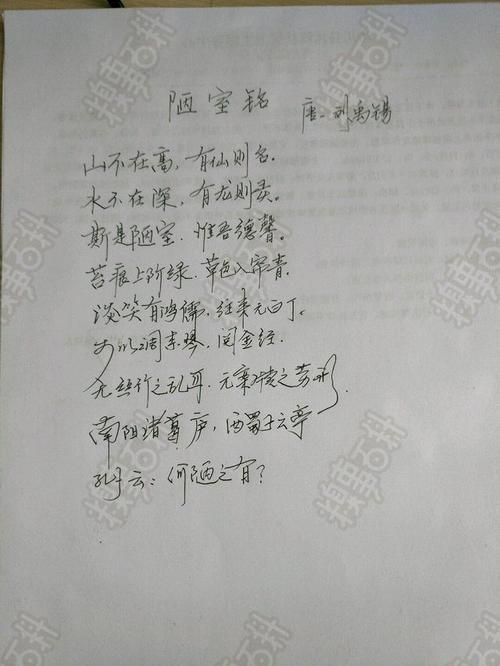 陋室铭 唐·刘禹锡
山不在高，有仙则名。
水不在深，有龙则灵。
斯是陋室，惟吾德馨。
苔痕上阶绿，草色入帘青。
谈笑有鸿儒，往来无白丁。
可以调素琴，阅金经。
无丝竹之乱耳，无案牍之劳形。
南阳诸葛庐，西蜀子云亭
孔子云：何陋之有？